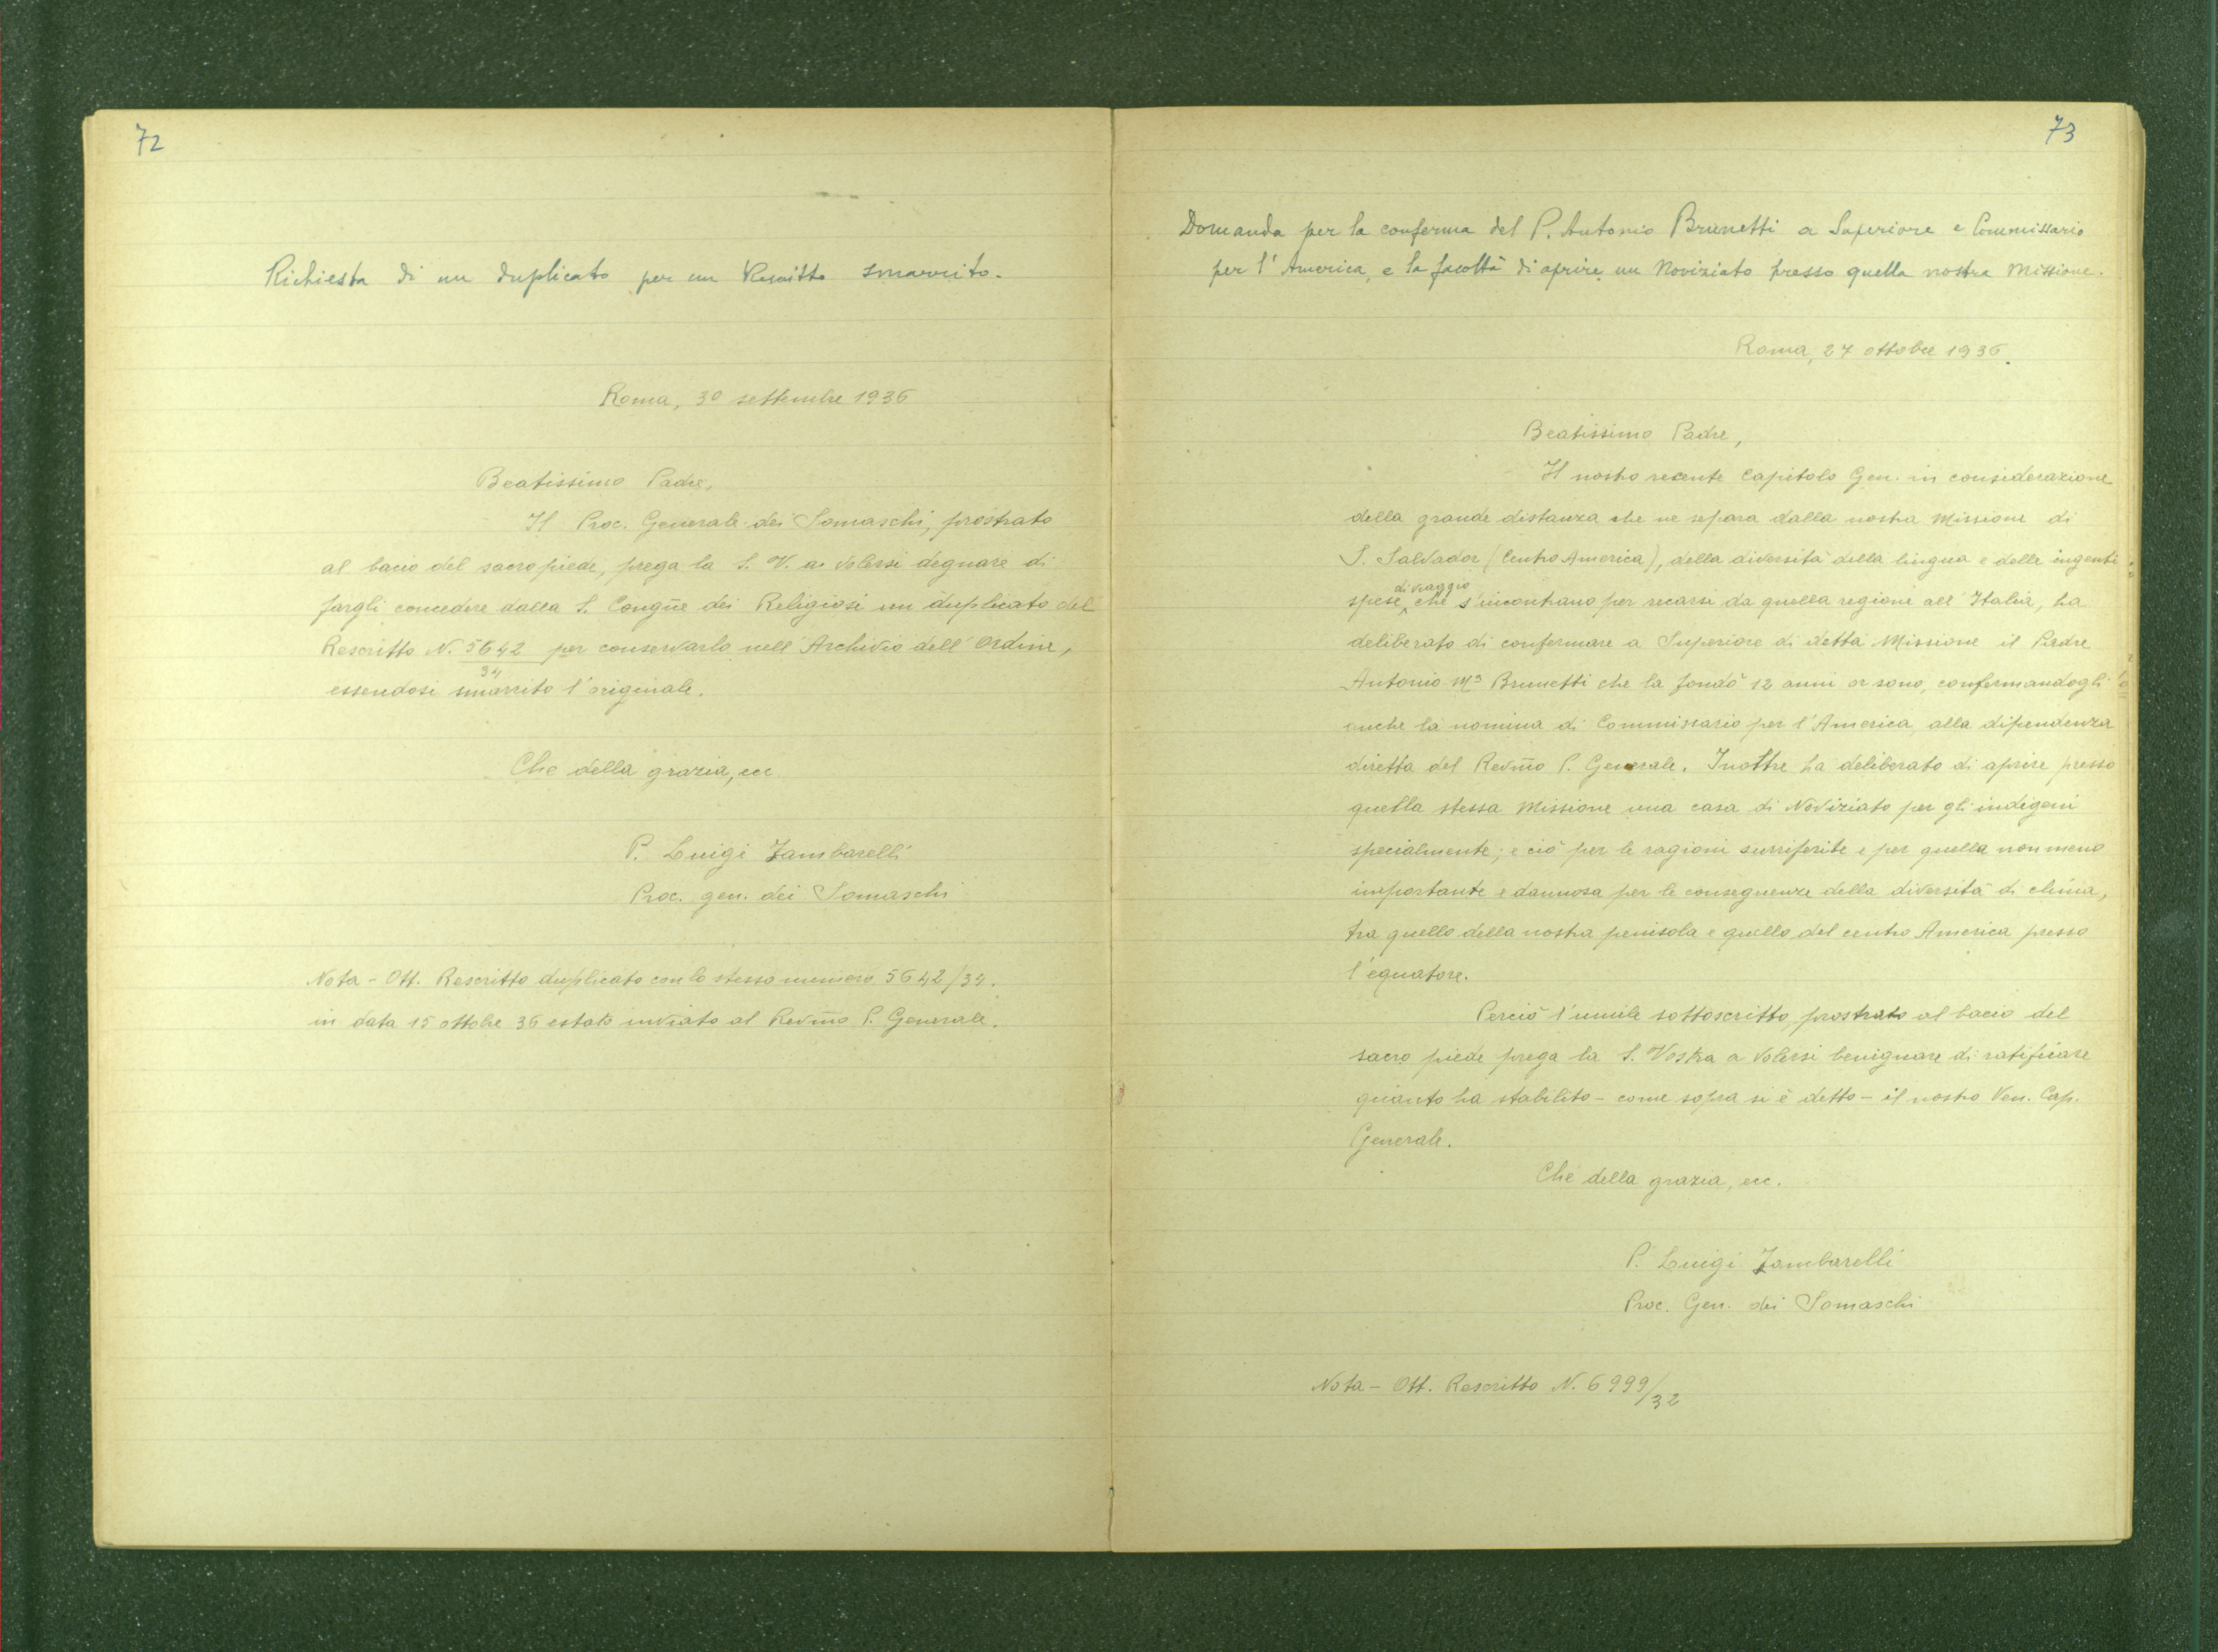 72
Richiesta di un duplicato per un Rescritto smarrito.
Roma, 30 settembre 1936
Beatissimo Padre,
Il Proc. Generale dei Somaschi, prostrato
al bacio del sacro piede, prega la S. V. a volersi degnare di
fargli concedere dalla S. Congñe dei Religiosi un duplicato del
Rescritto N. 5642/34 per conservarlo nell'Archivio dell'Ordine,
essendosi smarrito l'originale.
Che della grazia, ecc.
P. Luigi Zambarelli
Proc. gen. dei Somaschi
Nota - Ott. Rescritto duplicato con lo stesso numero 5642/34.
in data 15 ottobre 36 e stato inviato al Revm̃o P. Generale.
73
Domanda per la conferma del P. Antonio Brunetti a Superiore e Commissario
per l'America, e la facoltà di aprire un Noviziato presso quella nostra Missione.
Roma, 27 ottobre 1936.
Beatissimo Padre,
Il nostro recente Capitolo Gen. in considerazione
della grande distanza che ne separa dalla nostra Missione di
S. Salvador (Centro America), della diversità della lingua e delle ingenti
spese di viaggio che s'incontrano per recarsi da quella regione all'Italia, ha
deliberato di confermare a Superiore di detta Missione il Padre
Antonio Mª Brunetti che la fondò 12 anni or sono, confermandogli
anche la nomina di Commissario per l'America, alla dipendenza
diretta del Revm̃o P. Generale. Inoltre ha deliberato di aprire presso
quella stessa Missione una casa di Noviziato per gli indigeni
specialmente; e ciò per le ragioni surriferite e per quella non meno
importante e dannosa per le conseguenze della diversità di clima,
tra quello della nostra penisola e quello del centro America presso
l'equatore.
Perciò l'umile sottoscritto, prostrato al bacio del
sacro piede prega la S. Vostra a volersi benignare di ratificare
quanto ha stabilito - come sopra si è detto - il nostro Ven. Cap.
Generale.
Che della grazia, ecc.
P. Luigi Zambarelli
Proc. Gen. dei Somaschi
Nota - Ott. Rescritto N. 6999/32